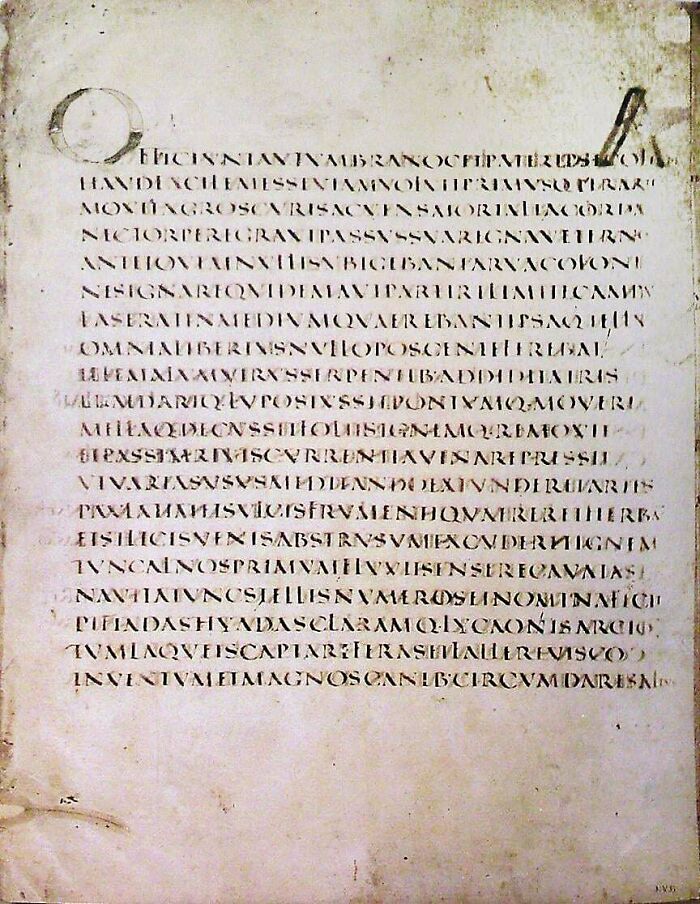 OFFICIVNTAVTVMBRANOCETPATERIPSECOL
HAVDFACILEMESSEVIAMVOLVITPRIMVSQ·PERAR
MOVITAGROSCVRISACVENSMORTALIACORDA
NECTORPEREGRAVIPASSVSSVAREGNAVETERNO
ANTEIOVEMNVLLISVBIGEBANTARVACOLONI
NESIGNAREQVIDEMAVTPARTIRILIMITECAMPV
FASERATINMEDIVMQVAEREBANTIPSAQ·TELLVS
OMNIALIBERIVSNVLLOPOSCENTEFEREBAT
ILLEMALVMVIRVSSERPENTIB·ADDIDITATRIS
PRAEDARIQ·LVPOSIVSSITPONTVMQ·MOVERI
MELLAQ·DECVSSITFOLIISIGNEMQ·REMOVIT
ETPASSIMRIVISCVRRENTIAVINAREPRESSIT
VTVARIASVSVSMEDITANDOEXTVNDERETARTIS
PAVLATIMETSVLCISFRVMENTIQVAERERETHERBA
ETSILICISVENISABSTRVSVMEXCVDERETIGNEM
TVNCALNOSPRIMVMFLVVIISENSERECAVATAS
NAVITATVNCSTELLISNVMEROSETNOMINAFECIT
PLEIADASHYADASCLARAMQ·LYCAONISARCTO
TVMLAQVEISCAPTAREFERASETFALLEREVISCO
INVENTVMETMAGNOSCANIB·CIRCVMDARESAL